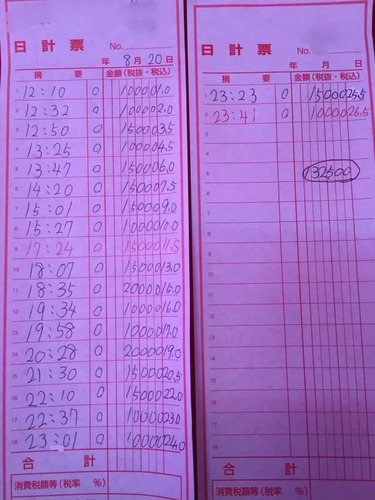 日計票 No.
年 8月 20日
摘 要 金額(税抜・税込)
1 12:10 0 10000 1.0
2 12:32 0 10000 2.0
3 12:50 0 15000 3.5
4 13:25 0 10000 4.5
5 13:47 0 15000 6.0
6 14:20 0 15000 7.5
7 15:01 0 15000 9.0
8 15:27 0 10000 10.0
9 17:24 0 15000 11.5
10 18:07 0 15000 13.0
11 18:35 0 20000 15.0
12 19:34 0 10000 16.0
13 19:58 0 10000 17.0
14 20:28 0 20000 19.0
15 21:30 0 15000 20.5
16 22:10 0 15000 22.0
17 22:37 0 10000 23.0
18 23:01 0 10000 24.0
合 計
消費税額等(税率 %)
日計票 No.
年 月 日
摘 要 金額(税抜・税込)
1 23:23 0 15000 25.5
2 23:41 0 10000 26.5
3
4
5 132500
6
7
8
9
10
11
12
13
14
15
16
17
18
合 計
消費税額等(税率 %)